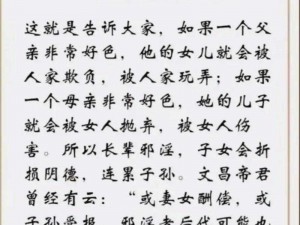 这就是告诉大家，如果一个父
亲非常好色，他的女儿就会被
人家欺负，被人家玩弄；如果
一个母亲非常好色，她的儿子
就会被女人抛弃，被女人伤
害。所以长辈邪淫，子女会折
损阴德，连累子孙。文昌帝君
曾经有云：“或妻女酬偿，或
子孙受报。”邪淫者后代可能也